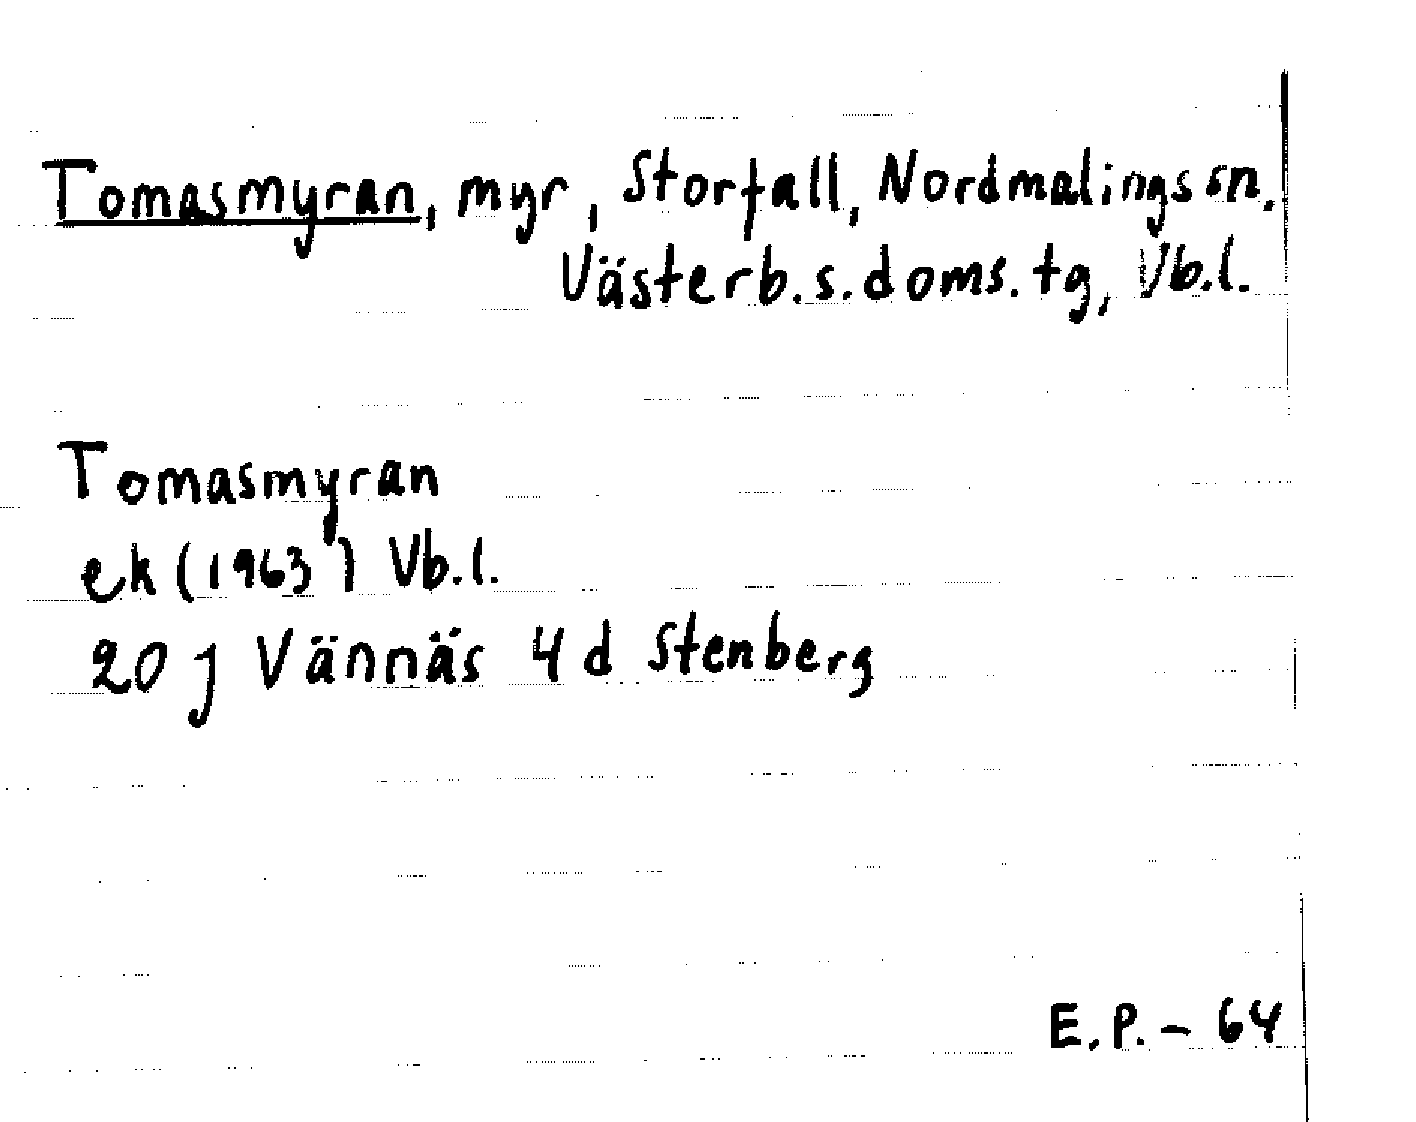 Tomasmyran, myr, Storfall, Nordmalings sn.
Västerb.s.doms.tg, Vb.l.
Tomasmyran
ek (1963) Vb.l.
20 J Vännäs 4 d Stenberg
E.P. - 64